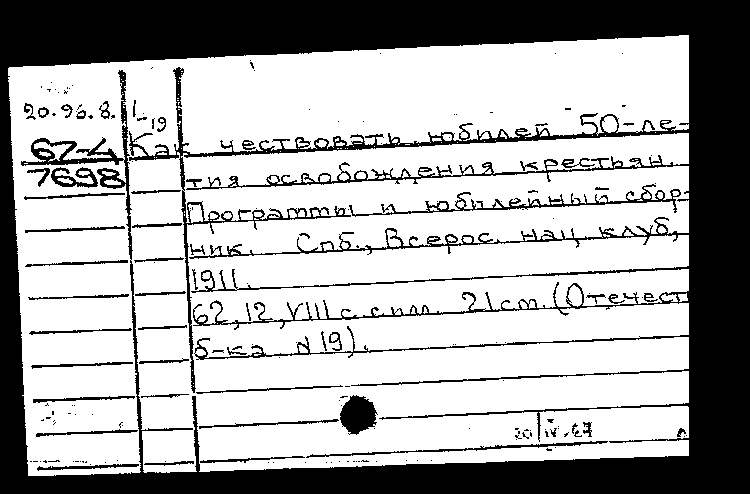 20.96.8. L19
67-4 Как чествовать юбилей 50-ле-
7698 тия освобождения крестьян.
Программы и юбилейный сбор-
ник. Спб., Всерос. нац. клуб,
1911.
62, 12, VIII с. с илл. 21 см. (Отечест
б-ка №19).
20 IV.67